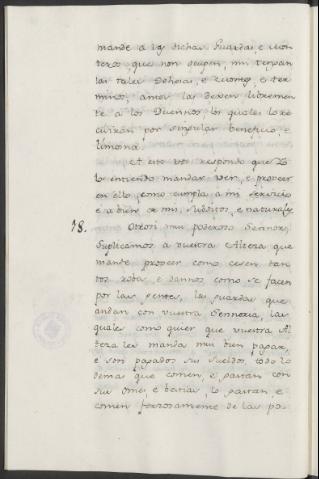 mande a las dichas Guardas, e mon-
teros, que non ocupen, nin tengan
las tales Dehesas, e cuortos, e ter-
minos, antes las dexen libremen-
te a los Dueños los quales lo re-
civirán por singular beneficio, e
limosna.
A esto vos respondo que Yo
lo entiendo mandar ver, e proveer
en ello, como cumpla a mi servicio
e a bien de mis subditos, e naturales
18. Otrosi muy poderoso Sennor,
Suplicamos a vuestra Alteza que
mande proveer como cesen tan-
tos robos, e dannos como se facen
por las gentes, las guardas que
andan con vuestra Sennoria, las
quales como quier que vuestra Al-
teza les manda mui bien pagar,
e son pagados sus sueldos, todo lo
demas que comen, e gastan con
sus omes, e bestias, lo gastan, e
comen forzosamente de las po-